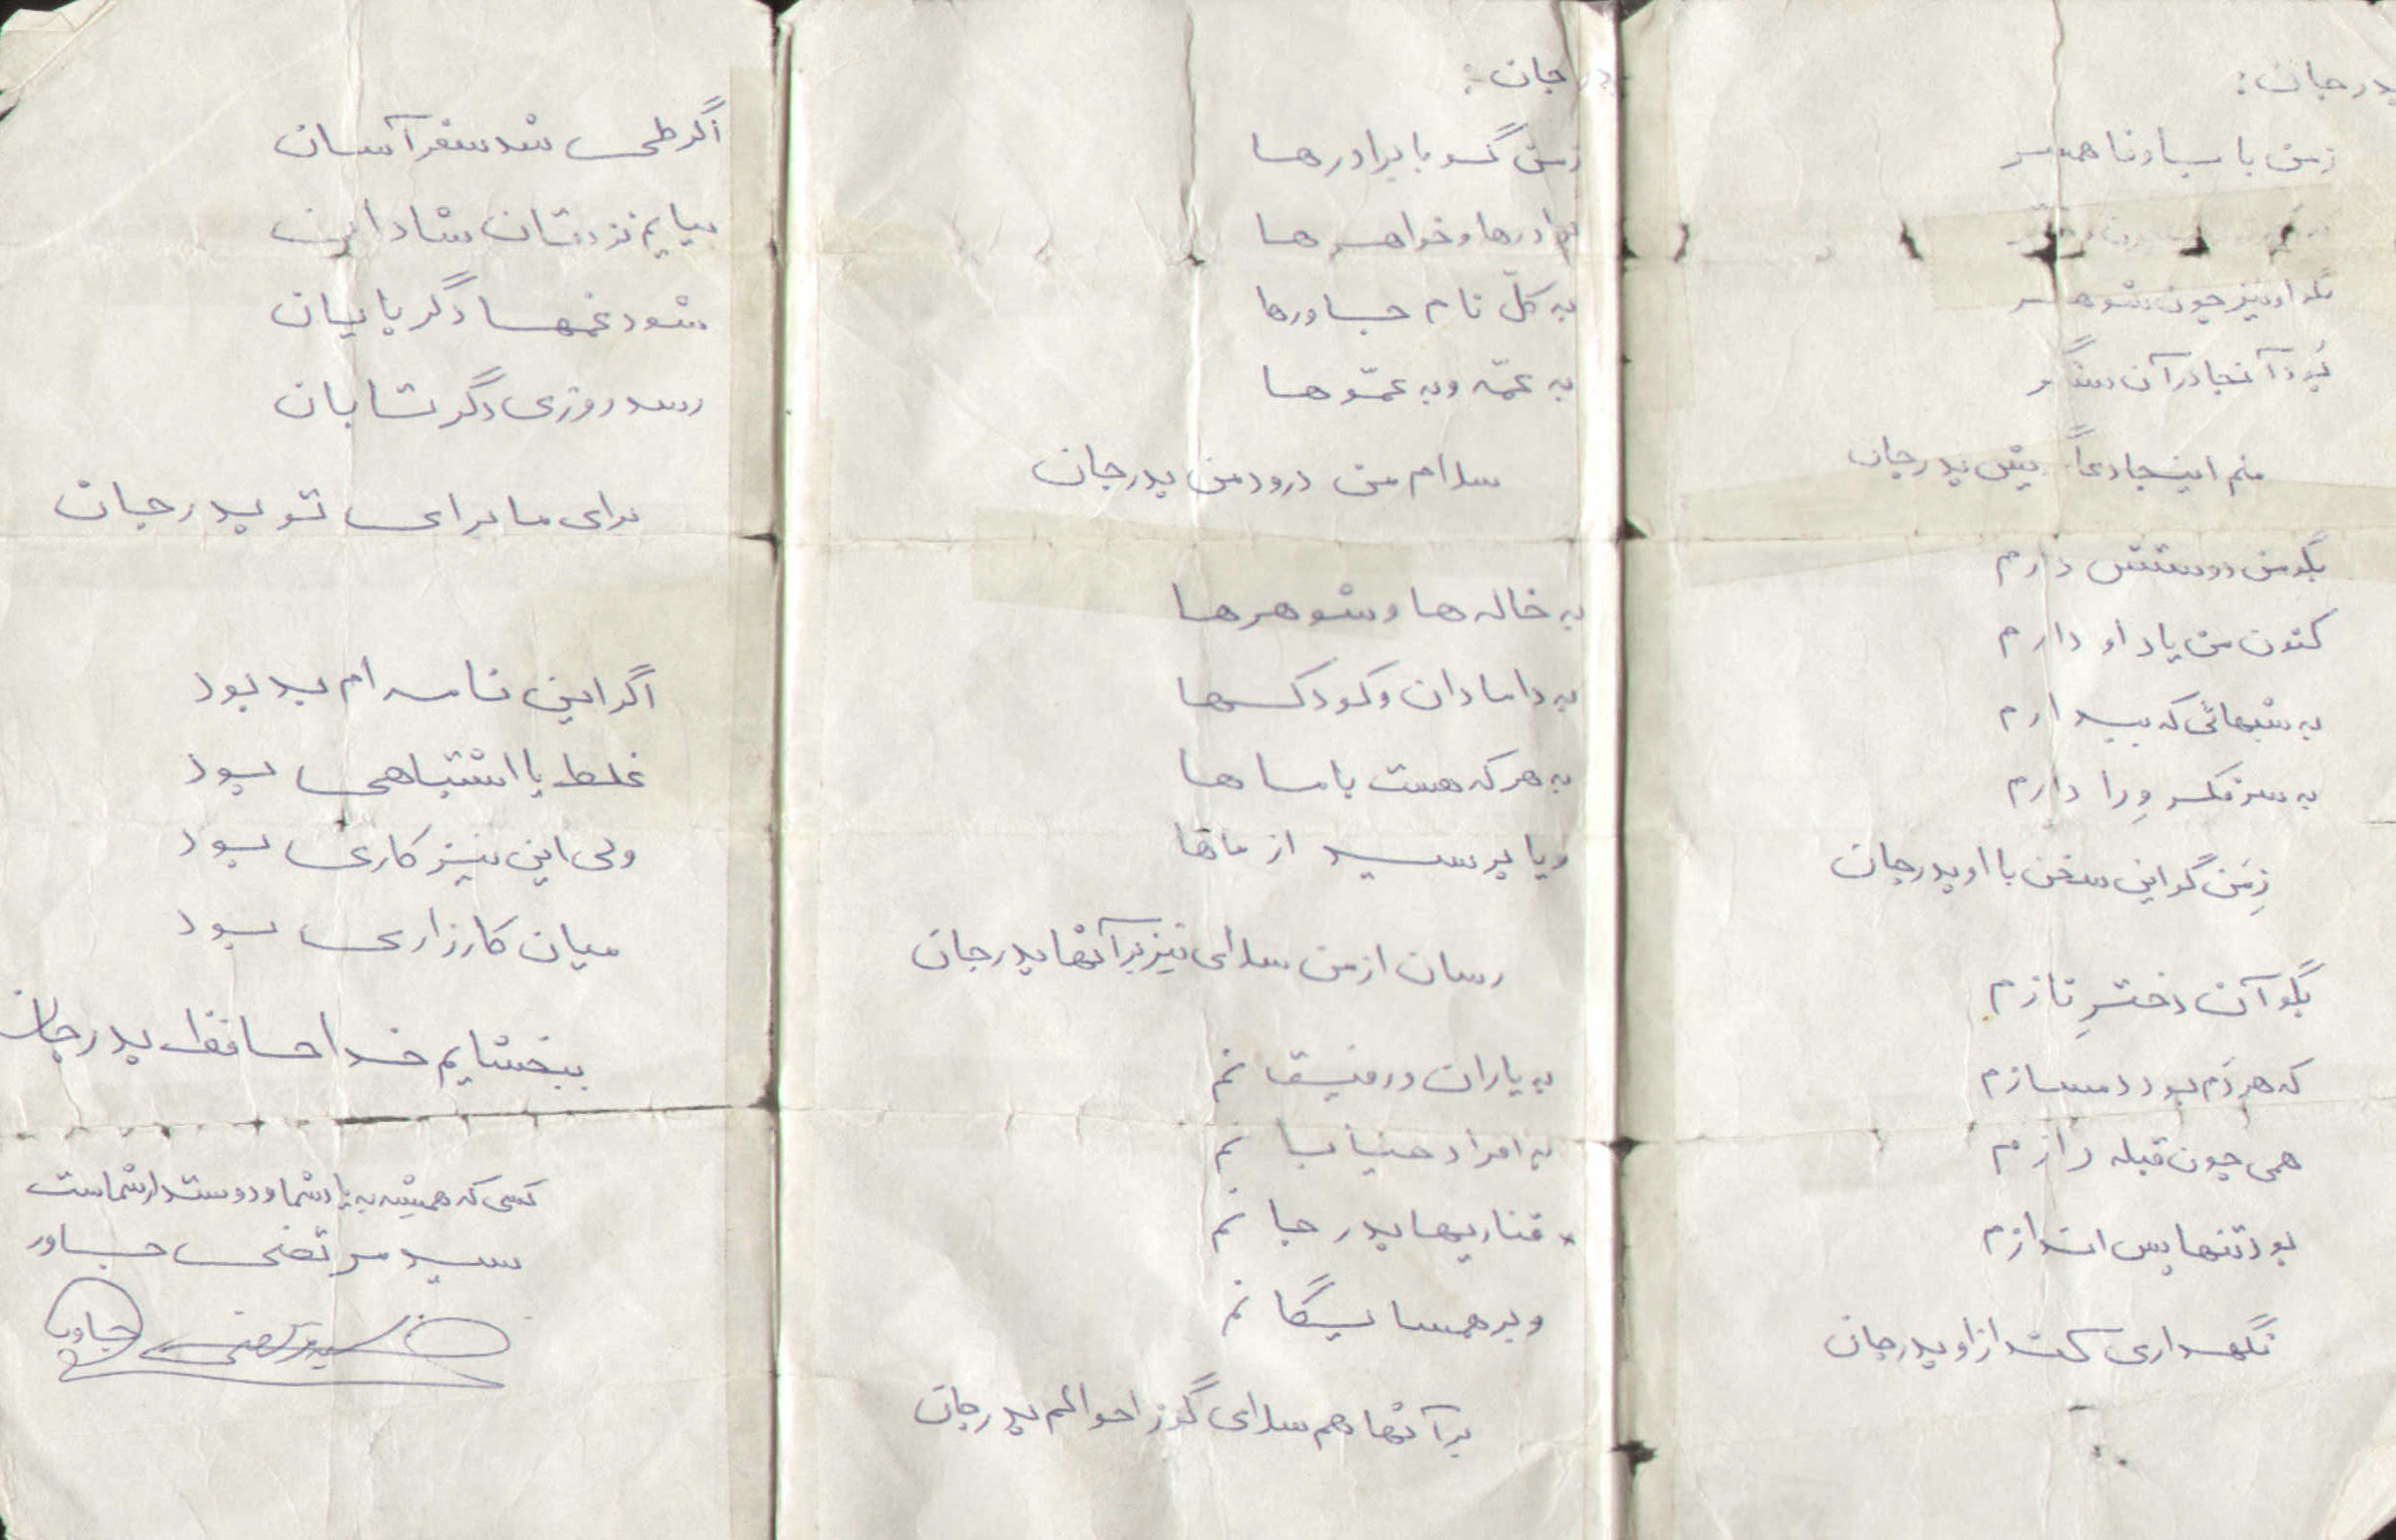 پدر جان:
زمن با باوفا همسر
بگو او نیز چون شوهر
بُوَد آنجا در آن سنگر
منم اینجا دعاگویش پدر جان
بگو من دوستش دارم
کنون من یاد او دارم
به شبهائی که بیدارم
به سر فکر وِرا دارم
زِمَن گو این سخن با او پدر جان
بگو آن دخترِ نازم
که هر دَم بود دمسازم
همی چون قبله رازم
بود تنها پس اندازم
نگهداری کنید از او پدر جان
پدر جان:
زمن گو با برادرها
برادرها و خواهرها
به کلّ نام جباورها
به عمّه و به عمّوها
سلام من درود من پدر جان
به خاله ها و شوهرها
به دامادان و کودکها
به هر که هست با ماها
و یا پرسید از ماها
رسان از من سلامی نیز بر آنها پدر جان
به یاران و رفیقانم
به افراد خیابانم
قناریها پدر جانم
و بر همسایگانم
بر آنها هم سلامی گو ز احوالم پدر جان
اگر طی شد سفر آسان
بیایم نزدتان شادان
شود غمها دگر پایان
رسد روزی دگر تابان
برای ما برای تو پدر جان
اگر این نامه ام بد بود
غلط یا اشتباهی بود
ولی این نیز کاری بود
میان کارزاری بود
ببخشایم خداحافظ پدر جان
کسی که همیشه به یاد شما و دوستدار شماست
سید مرتضی جباور
سید مرتضی جباور